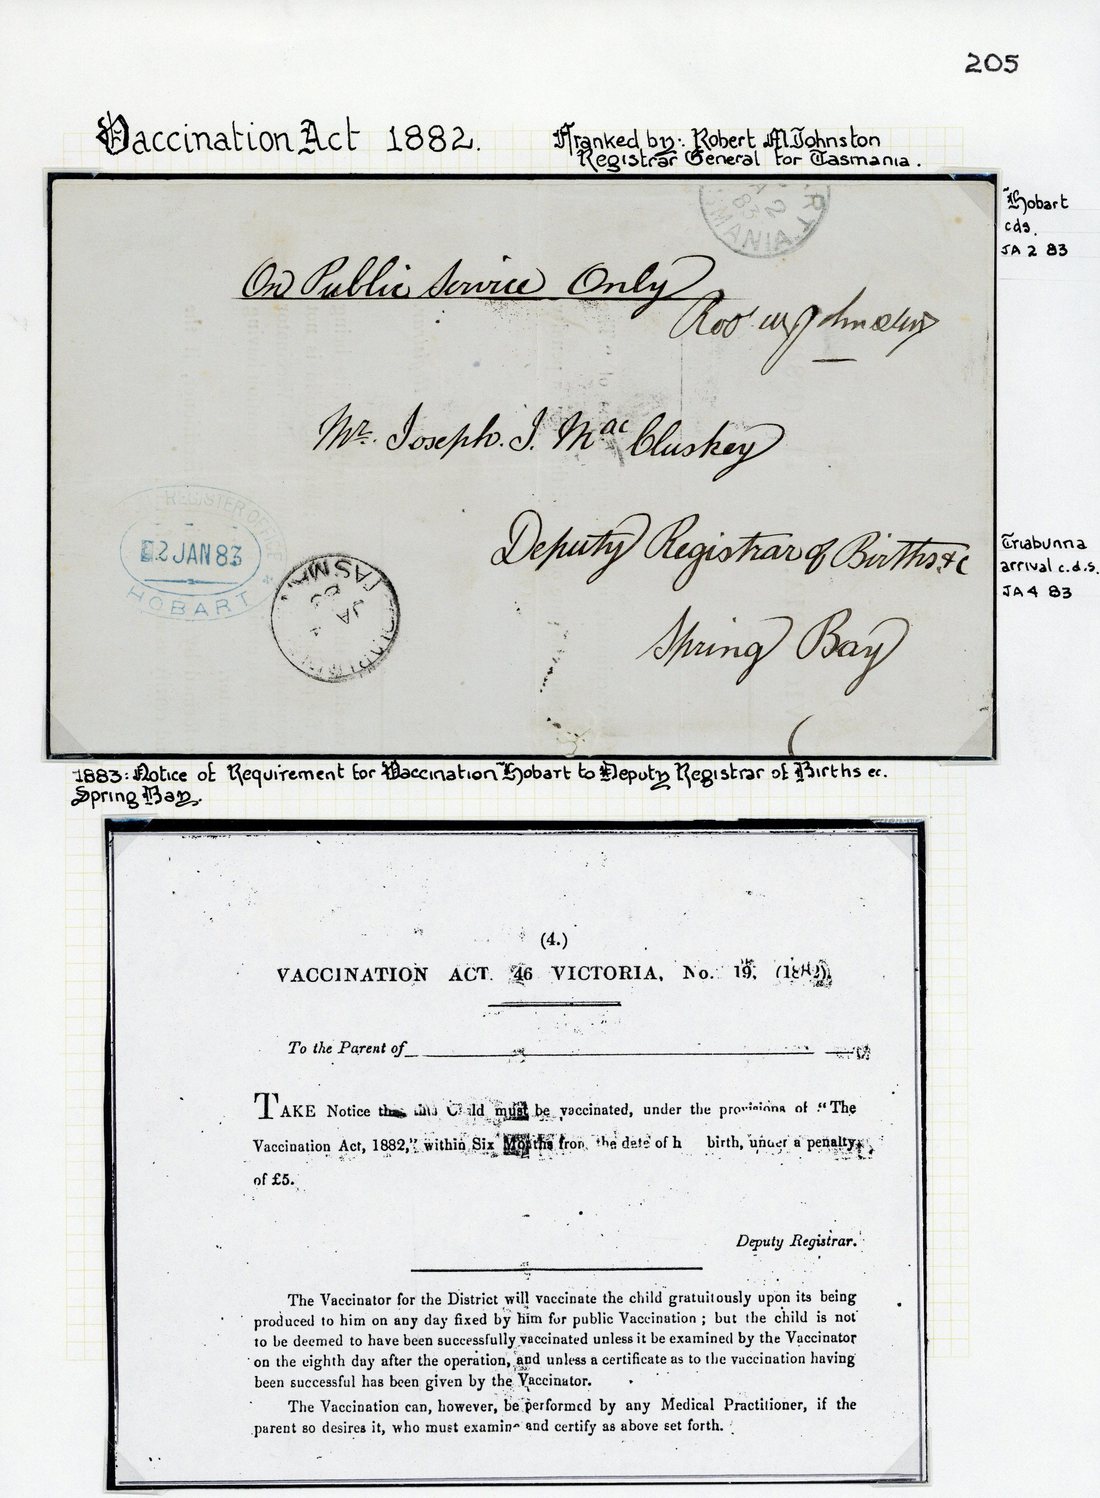 205
Vaccination Act 1882.
Franked by: Robert M Johnston
Registrar General for Tasmania.
Hobart
cds.
JA 2 83
RT
2
83
SMANIA
On Public Service Only
Mr. Joseph. J. Mac Cluskey
REGISTER OFFICE
2 JAN 83
HOBART
TASMA
JA
Deputy Registrar of Births &c
Spring Bay
Triabunna
arrival c.d.s.
JA 4 83
1883: Notice of Requirement for Vaccination Hobart to Deputy Registrar of Births ec.
Spring Bay.
(4.)
VACCINATION ACT. 46 VICTORIA, No. 19. (1882).
To the Parent of
TAKE Notice that this Child must be vaccinated, under the provisions of "The
Vaccination Act, 1882," within Six Months from the date of h birth, under a penalty
of £5.
Deputy Registrar.
The Vaccinator for the District will vaccinate the child gratuitously upon its being
produced to him on any day fixed by him for public Vaccination ; but the child is not
to be deemed to have been successfully vaccinated unless it be examined by the Vaccinator
on the eighth day after the operation, and unless a certificate as to the vaccination having
been successful has been given by the Vaccinator.
The Vaccination can, however, be performed by any Medical Practitioner, if the
parent so desires it, who must examine and certify as above set forth.